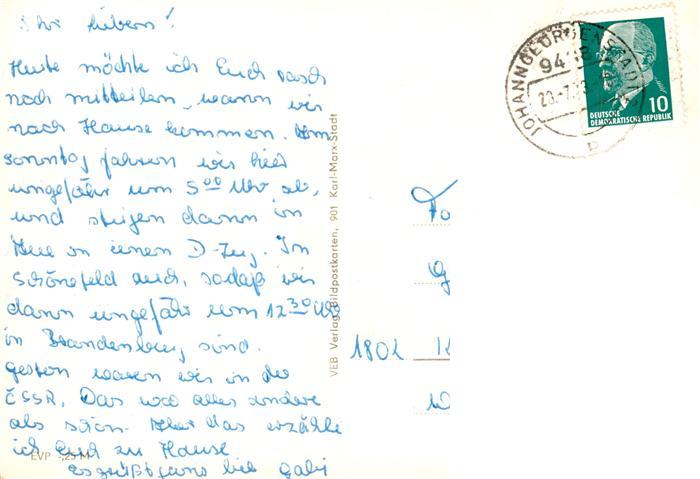 Ihr Lieben!
Heute möchte ich Euch rasch
noch mitteilen, wann wir
nach Hause kommen. Am
Sonntag fahren wir hier
ungefähr um 5⁰⁰ Uhr ab,
und steigen dann in
Aue in einen D-Zug. In
Schönefeld auch, sodaß wir
dann ungefähr um 12³⁰ Uhr
in Brandenburg sind.
Gestern waren wir in der
ČSSR. Das war alles andere
als schön. Aber das erzähle
ich Euch zu Hause
Es grüßt ganz lieb Gabi
EVP -,25 M
VEB Verlag Bildpostkarten, 901 Karl-Marx-Stadt
JOHANNGEORGENSTADT
DEUTSCHE
DEMOKRATISCHE REPUBLIK
10
1802